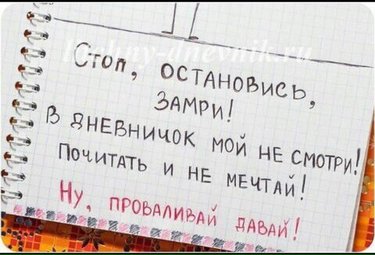 lichny-dnevnik.ru
Стоп, остановись,
Замри!
В дневничок мой не смотри!
Почитать и не мечтай!
Ну, проваливай давай!